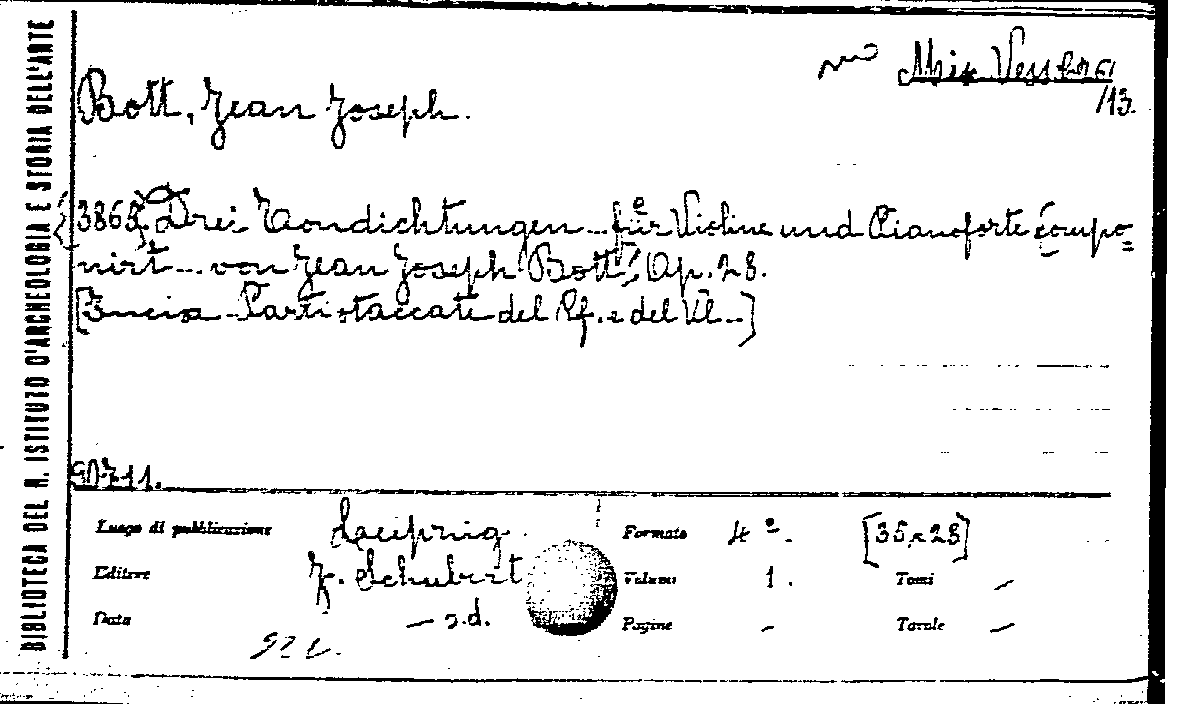 BIBLIOTECA DEL R. ISTITUTO D'ARCHEOLOGIA E STORIA DELL'ARTE
Mss. Vess
/13.
Bott, Jean Joseph.
Drei Tondichtungen für Violine und Pianoforte compo=
nirt von Jean Joseph Bott, Op. 28.
Parti staccate del Pf. e del Vl.]
90711.
Luogo di pubblicazione Leipzig. Formato 4º. [35x28]
Editore J. Schubert Volume 1. Tomi —
Data — s.d. Pagine — Tavole —